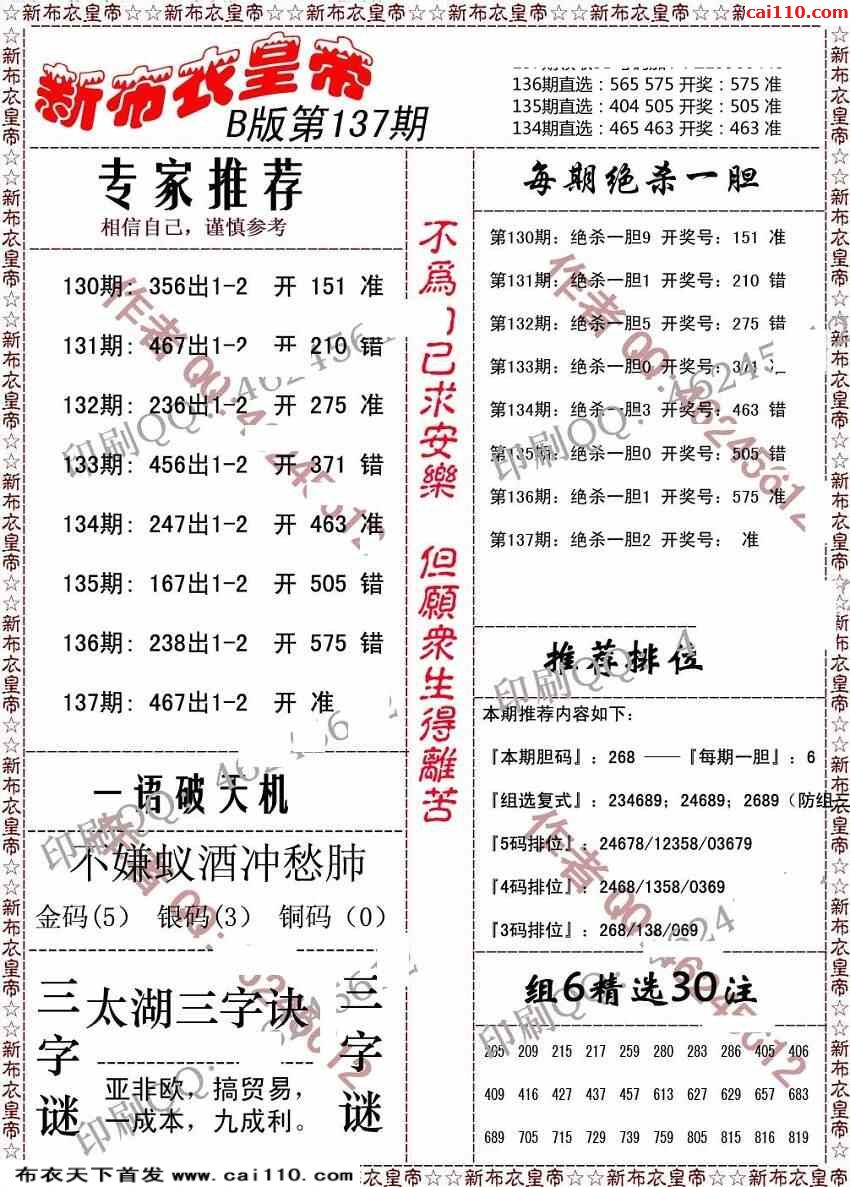 ☆☆新布衣皇帝☆☆新布衣皇帝☆☆新布衣皇帝☆☆新布衣皇帝☆☆新布衣皇帝☆☆
cai110.com
新布衣皇帝
B版第137期
136期直选：565 575 开奖：575 准
135期直选：404 505 开奖：505 准
134期直选：465 463 开奖：463 准
专家推荐
相信自己，谨慎参考
130期: 356出1-2 开 151 准
131期: 467出1-2 开 210 错
132期: 236出1-2 开 275 准
133期: 456出1-2 开 371 错
134期: 247出1-2 开 463 准
135期: 167出1-2 开 505 错
136期: 238出1-2 开 575 错
137期: 467出1-2 开 准
一语破天机
不嫌蚁酒冲愁肺
金码(5) 银码(3) 铜码（0）
三字谜
太湖三字诀
亚非欧，搞贸易，
一成本，九成利。
三字谜
不為 己求安樂 但願衆生得離苦
每期绝杀一胆
第130期：绝杀一胆9 开奖号：151 准
第131期：绝杀一胆1 开奖号：210 错
第132期：绝杀一胆5 开奖号：275 错
第133期：绝杀一胆0 开奖号：371
第134期：绝杀一胆3 开奖号：463 错
第135期：绝杀一胆0 开奖号：505 错
第136期：绝杀一胆1 开奖号：575 准
第137期：绝杀一胆2 开奖号： 准
推荐排位
本期推荐内容如下：
『本期胆码』：268 ——『每期一胆』：6
『组选复式』：234689；24689；2689（防组三
『5码排位』：24678/12358/03679
『4码排位』：2468/1358/0369
『3码排位』：268/138/069
组6精选30注
205 209 215 217 259 280 283 286 405 406
409 416 427 437 457 613 627 629 657 683
689 705 715 729 739 759 805 815 816 819
作者 QQ:46245612
印刷QQ：46245612
布衣天下首发 www.cai110.com
衣皇帝☆☆新布衣皇帝☆☆新布衣皇帝☆☆新布衣皇帝☆☆